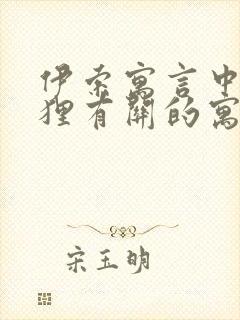 伊索寓言中
狸有关的寓
宋玉明